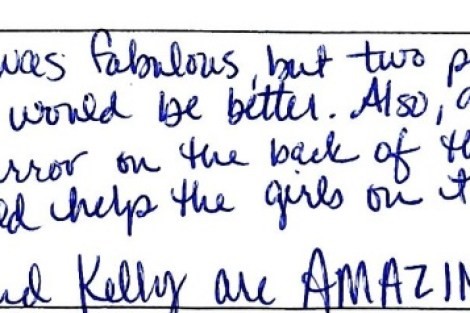 was fabulous, but two p
would be better. Also, a
irror on the back of th
ld help the girls on t
nd Kelly are AMAZIN